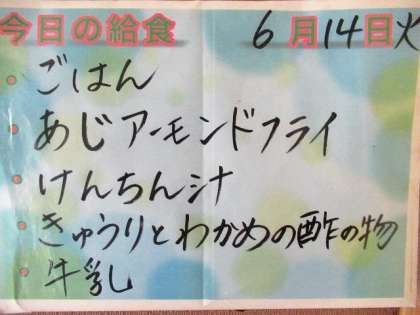 今日の給食 6月14日火
ごはん
あじアーモンドフライ
けんちん汁
きゅうりとわかめの酢の物
牛乳